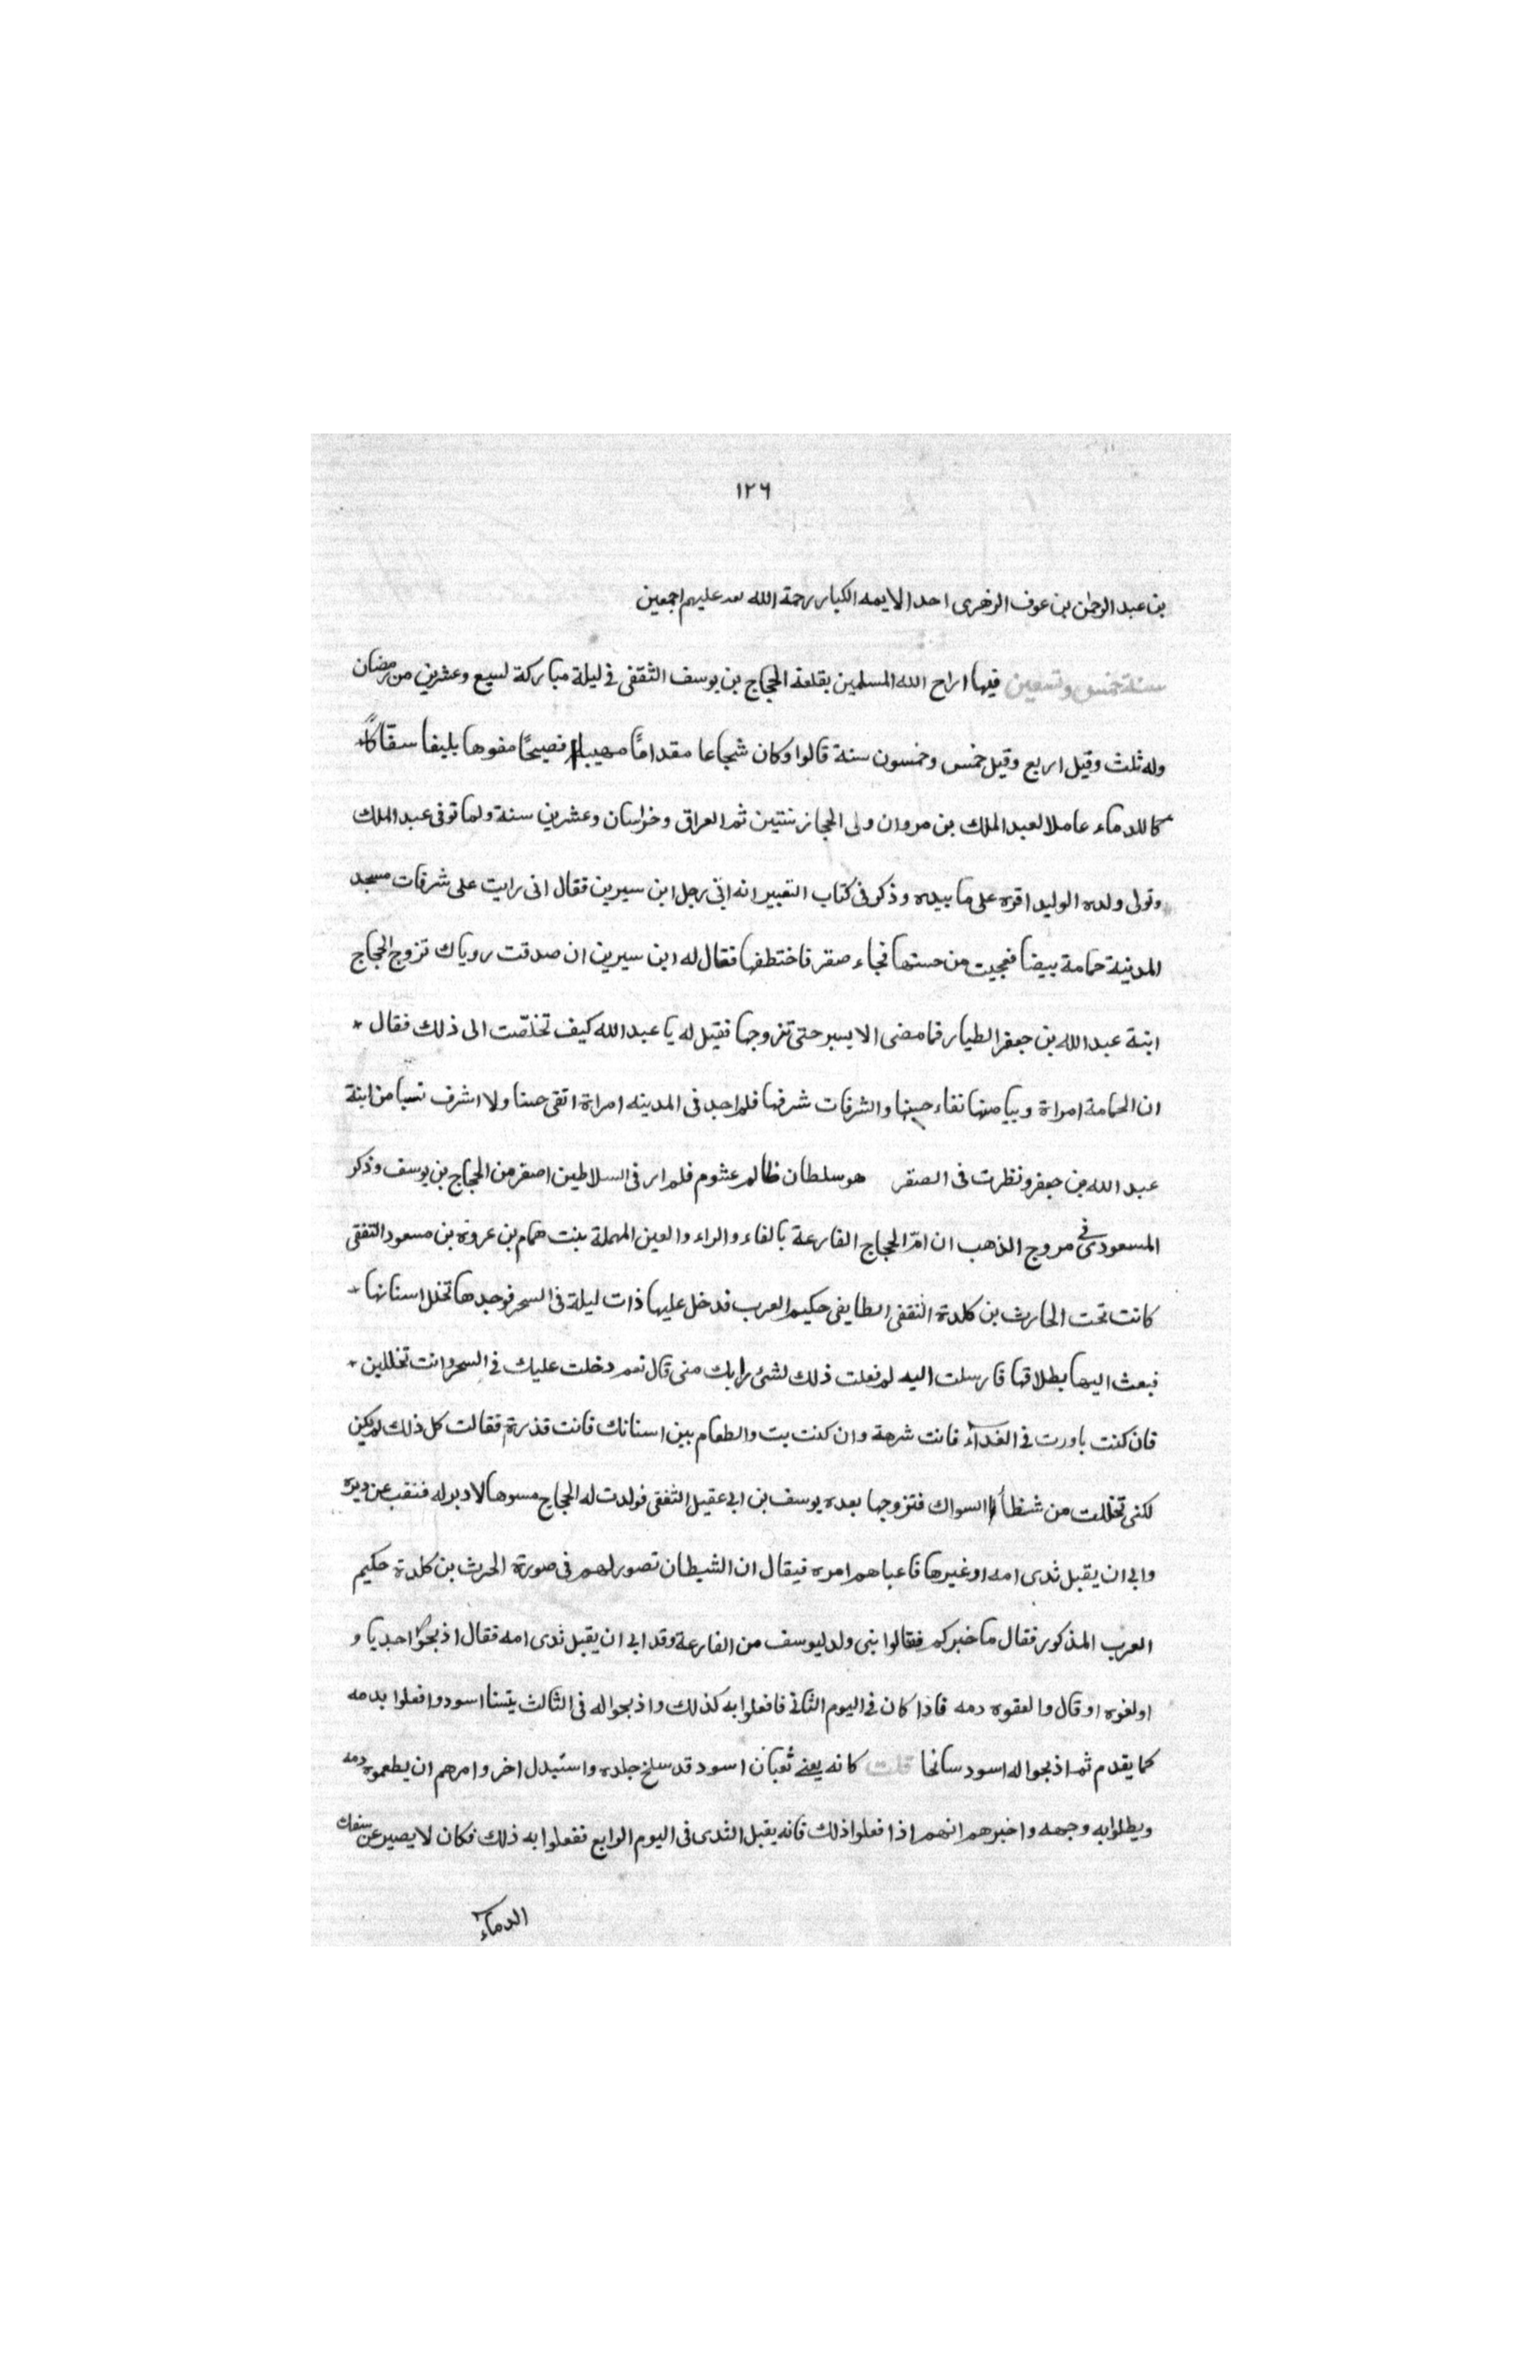 ١٢٦
بن عبد الرحمن بن عوف الزهرى احد الايمه الكبار رحمة الله عليهم اجمعين
سنة خمس وتسعين فيها اراح الله المسلمين بقلعة الحجاج بن يوسف الثقفى فى ليلة مباركة لسبع وعشرين من رمضان
وله ثلث وقيل اربع وقيل خمس وخمسون سنة قالوا وكان شجاعا مقدامًا مهيبا فصيحًا مفوها بليغا سفاكًا
كاللدماء عاملا لعبد الملك بن مروان ولى الحجاز سنتين ثم العراق وخراسان وعشرين سنة ولما توفى عبد الملك
وتولى ولده الوليد اقره على ما بيده وذكر فى كتاب التعبير انه اتى رجل ابن سيرين فقال انى رايت على شرفات مسجد
المدينة حمامة بيضا فعجبت من حسنها فجاء صقر فاختطفها فقال له ابن سيرين ان صدقت روياك تزوج الحجاج
ابنة عبد الله بن جعفر الطيار فما مضى الا يسير حتى تزوجها فقيل له يا عبد الله كيف تخلصت الى ذلك فقال *
ان الحمامة امراة وبياضها نقاء حسنها والشرفات شرفها فلم اجد فى المدينه امراة اتقى حسنا ولا اشرف نسبا من ابنة
عبد الله بن جعفر ونظرت فى الصقر هو سلطان ظالم غشوم فلم ار فى السلاطين اصقر من الحجاج بن يوسف وذكر
المسعودى فى مروج الذهب ان امّ الحجاج الفارعة بالفاء والراء والعين المهملة بنت همام بن عروة بن مسعود الثقفى
كانت تحت الحارث بن كلدة الثقفى الطايفى حكيم العرب فدخل عليها ذات ليلة فى السحر فوجدها تخلل اسنانها *
فبعث اليها بطلاقها فارسلت اليه لم فعلت ذلك لشئ رابك منى قال نعم دخلت عليك فى السحر وانت تخللين *
فان كنت باورت فى الغدآء فانت شرهة وان كنت بت والطعام بين اسنانك فانت قذرة فقالت كل ذلك لم يكن
لكنى تخللت من شظأ السواك فتزوجها بعده يوسف بن ابى عقيل الثقفى فولدت له الحجاج مسوها لا دبر له فنقب عن دبره
وابى ان يقبل ثدى امه او غيرها فاعياهم امره فيقال ان الشيطان تصور لهم فى صورة الحرث بن كلدة حكيم
العرب المذكور فقال ما خبركم فقالوا بنى ولد ليوسف من الفارعة وقد ابى ان يقبل ثدى امه فقال اذبحوا جديا و
اولغوه او قال والعقوه دمه فاذا كان فى اليوم الثانى فافعلوا به كذلك واذبحوا له فى الثالث يتسنا اسود وافعلوا بدمه
كما يقدم ثم اذبحوا له اسود سانحا قلت كانه يعنى ثعبان اسود قد سلخ جلده واستبدل اخر وامرهم ان يطعموه دمه
ويطلوا به وجهه واخبرهم انهم اذا فعلوا ذلك فانه يقبل الثدى فى اليوم الرابع ففعلوا به ذلك فكان لا يصبر عن سفك
الدماء